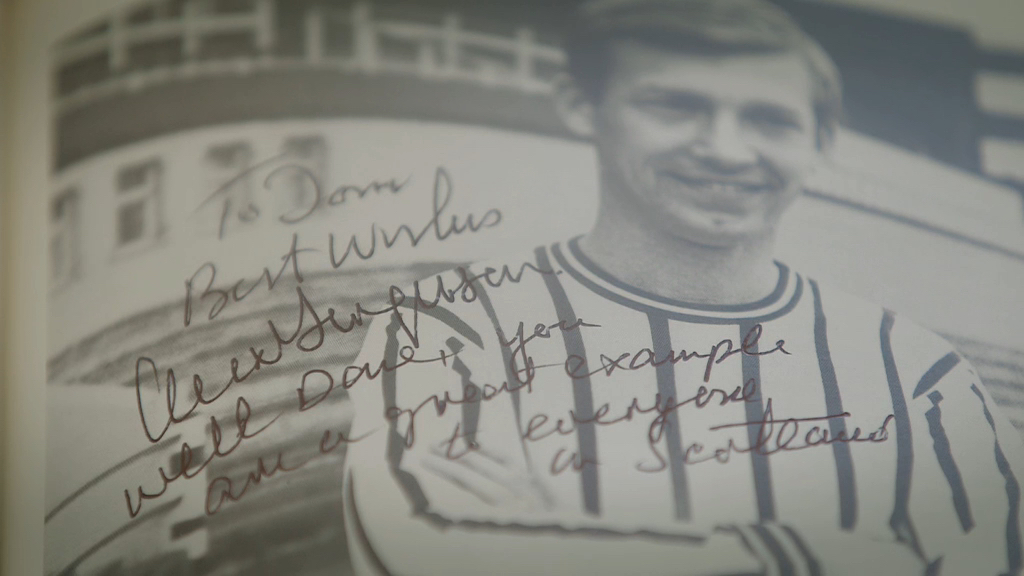 To Dom
Best Wishes
Alex Ferguson
well Done, you
are a great example
to everyone
in Scotland